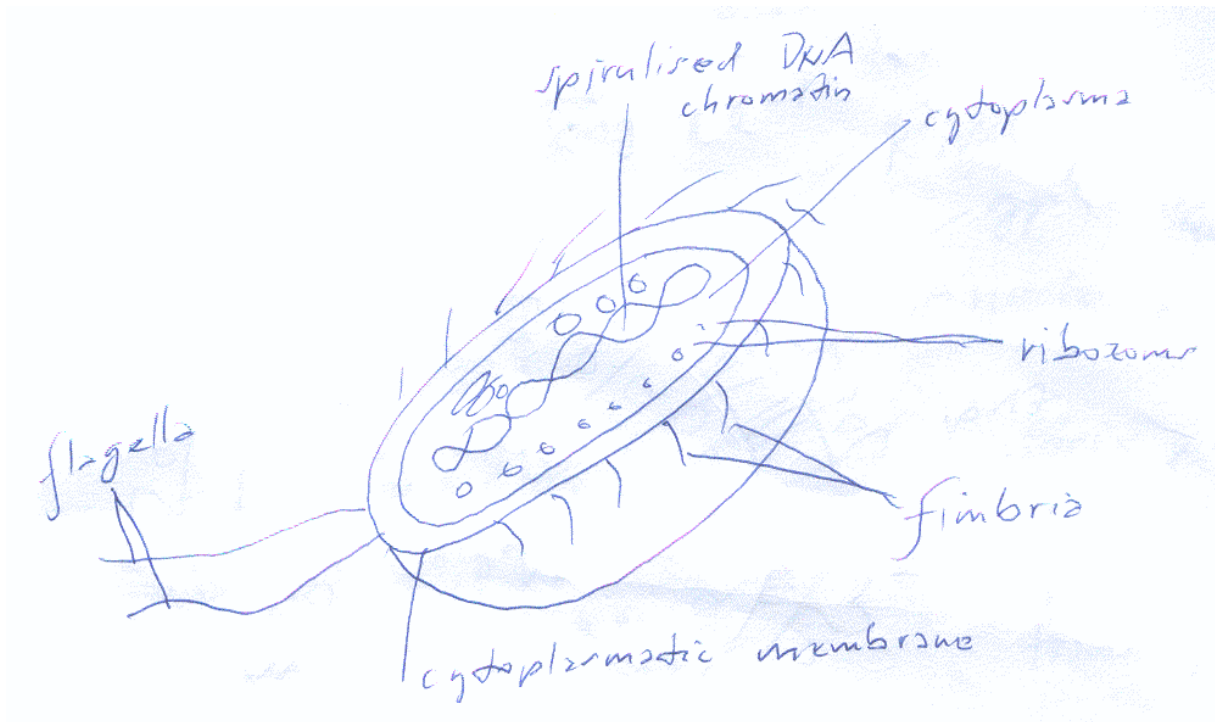 spirulised DNA
chromatin
cytoplasma
ribozoms
flagella
fimbria
cytoplasmatic membrane